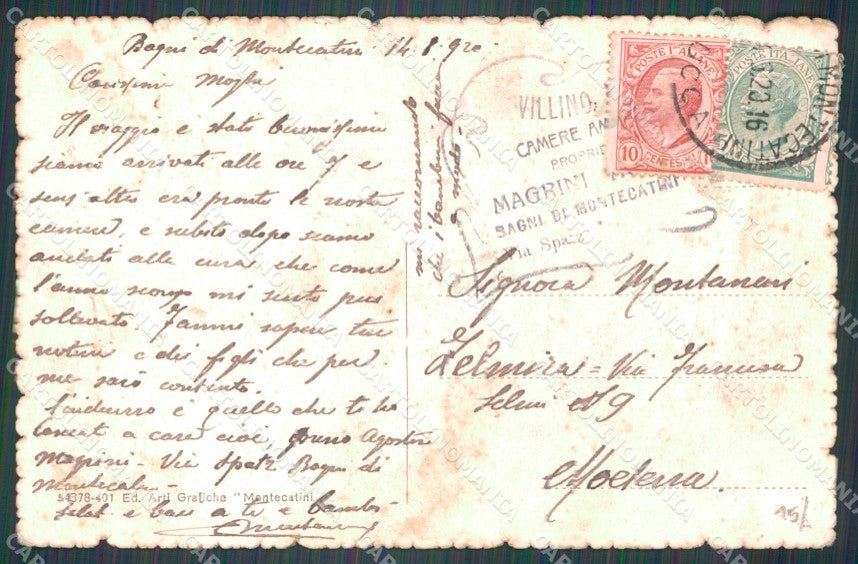 Bagni di Montecatini 14.8.920
Carissima Moglie
Il viaggio è stato buonissimo
siamo arrivati alle ore 7 e
senz'altro era pronto le nostre
camere, e subito dopo siamo
andati alle cura, che come
l'anno scorso mi sento più
sollevato. Fammi sapere tue
notizie e dei figli che per
me sarò contento.
L'indirizzo è quello che ti ho
lasciat a casa cioè, Agostin
Magrini - Via Spatz Bagni di
Montecatini
54378-401 Ed. Arti Grafiche "Montecatini
Salut e baci a te e bambi-
mi raccomando
che i bambini
a modo.
VILLINO
CAMERE AM
PROPRIE
MAGRINI
BAGNI DI MONTECATINI
Via Spatz
POSTE ITALIANE
10 CENTESIMI
POSTE ITALIANE
MONTECATINI
LUCCA
20.16
Signora Montanari
Zelmira = Via Francesco
Selmi N 9
Modena
15/
CARTOLINOMANIA